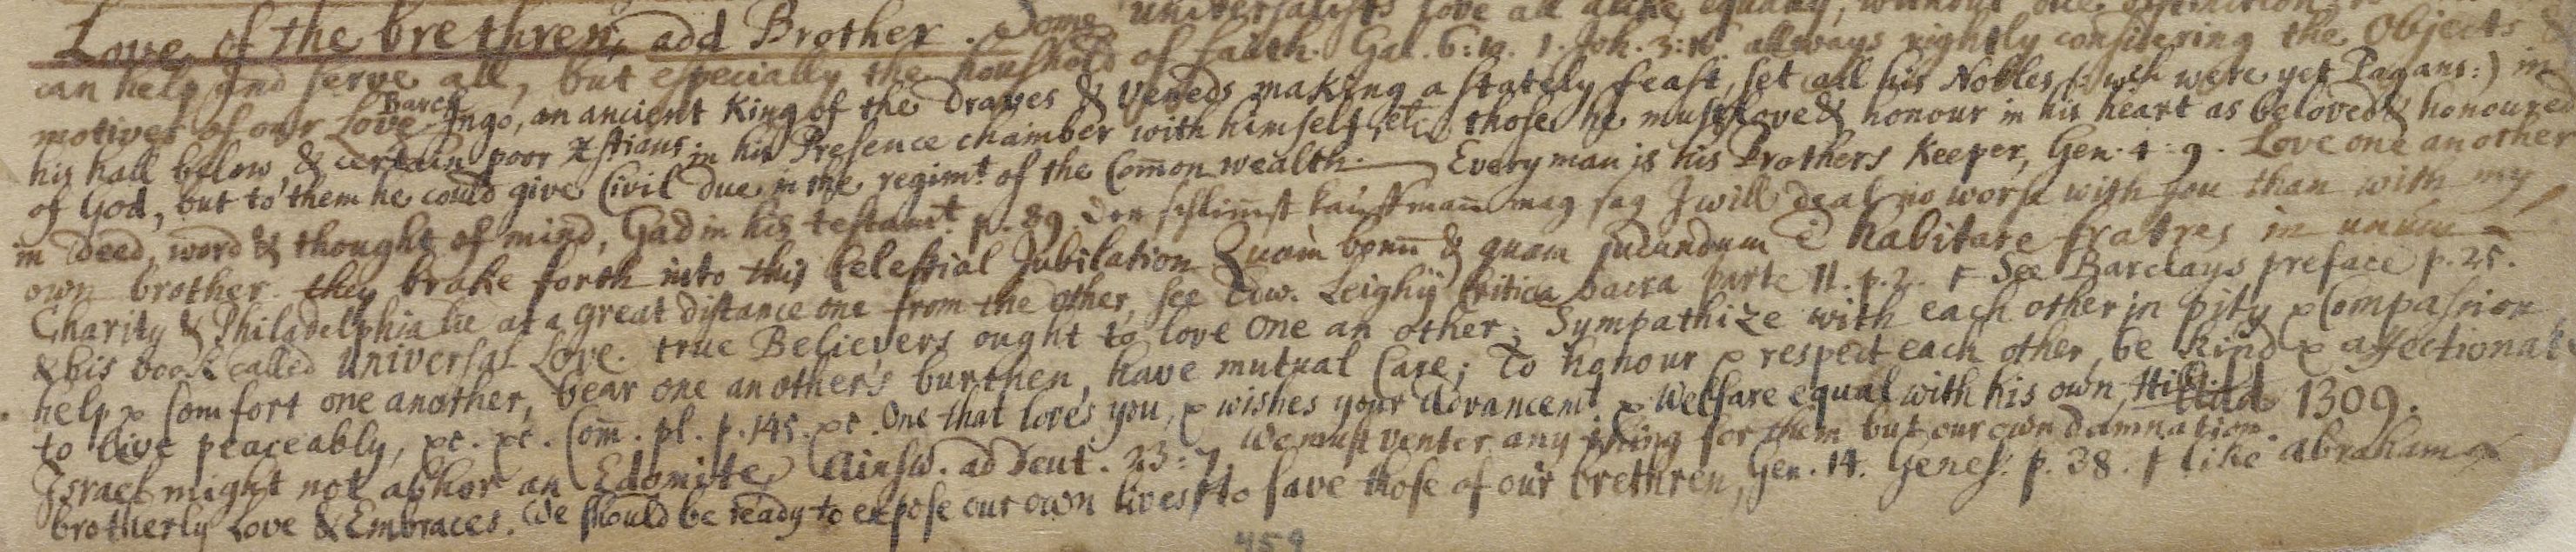 Love of the brethren, add Brother. Some universalists love all alike, equally, without due distinction
can help and serve all, but especially the houshold of faith. Gal. 6:10. 1. Joh. 3:16. allways rightly considering the Objects &
motives of our Love. Barcl. Ingo, an ancient King of the Draves & Veneds making a stately feast, set all his Nobles (: wch were yet Pagans:) in
his hall below, & certain poor Xstians in his Presence chamber with himself, etc. those he must love & honour in his heart as beloved & honoured
of God, but to them he could give Civil due in the regimt. of the Com̄on wealth. — Every man is his Brothers Keeper, Gen. 4:9. Love one another
in Deed, word & thought of mind, Gad in his testamt. p. 89. Der schlim̄st kaufman̄ mag sag I will deal no worse with you than with my
own brother. they brake forth into this Celestial Jubilation Quam bonū & quam jucundum ē habitare fratres in unum
Charity & Philadelphia lie at a great distance one from the other, see Edw. Leighÿ Critica Sacra parte 11. p. 2. See Barclays preface p. 25.
& his book called Universal Love. true Believers ought to love one an other; Sympathize with each other in pity & Compassion
help & Comfort one another, bear one an others burthen, have mutual Care; To honour & respect each other, be kind & affectionat
to live peaceably, &c. &c. Com̄. pl. p. 145. &c. One that loves you, & wishes your Advancemt & Welfare equal with his own, 1309.
Israel might not abhor an Edomite, Ainsw. ad Deut. 23:7. We must venter any thing for them but our own damnation.
brotherly Love & Embraces. We should be ready to expose our own lives to save those of our brethren, Gen. 14. Genes. p. 38. like Abraham
459